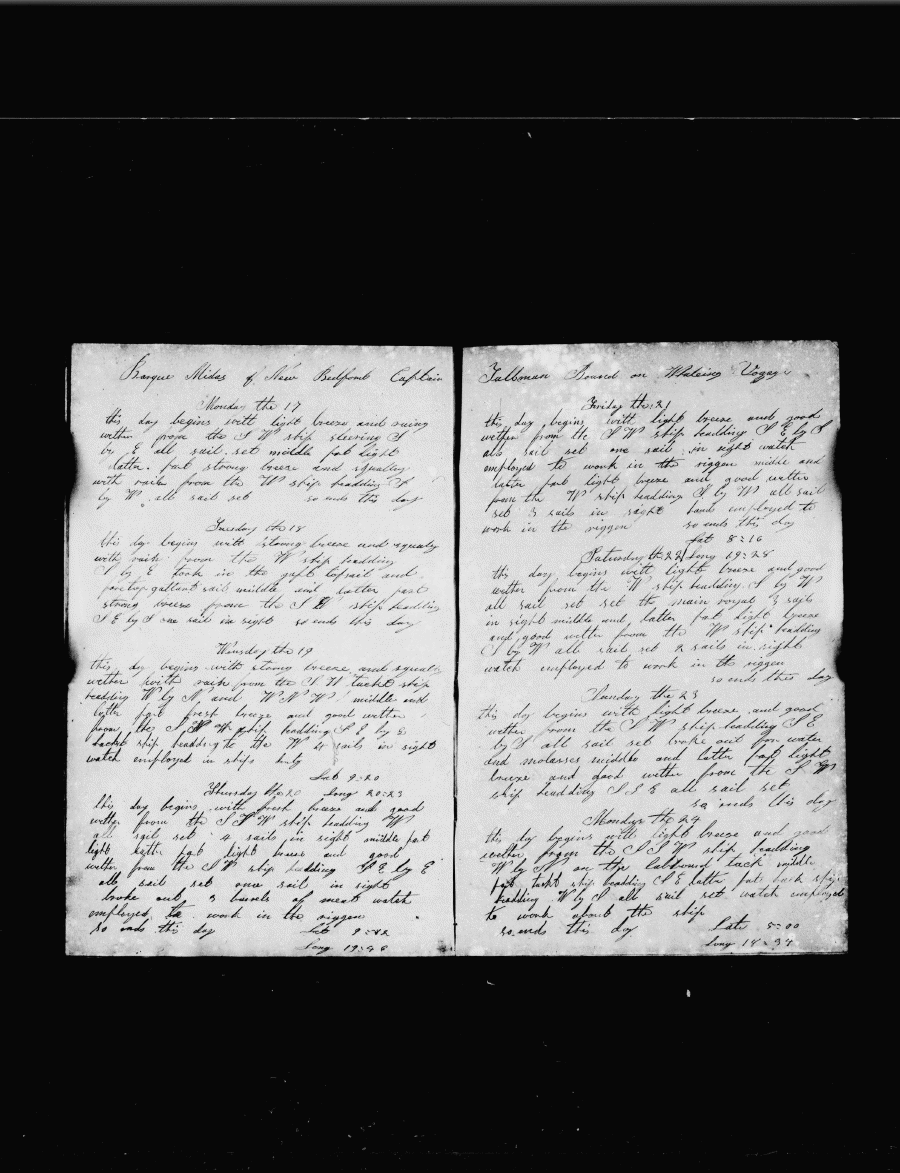 Barque Midas of New Bedford Captain
Monday the 17
this day begins with light breeze and
wether from the S W ship steering S
by E all sail set middle pat light
latter pat strong breeze and squaley
with rain from the W ship headding S
by W all sail set so ends this day
Tuesday the 18
this day begins with strong breeze and squaley
with rain from the W ship headding
S by E took in the gaft topsail and
foretop gallant sail middle and latter part
strong breeze from the S W ship headding
S E by S one sail in sight so ends this day
Winsday the 19
this day begins with strong breeze and squaley
wether with rain from the S W tackt ship
headding W by N and W N W middle and
latter pat fresh breeze and good wether
from the S W ship headding S E by E
tackt ship headding to the W 4 sails in sight
watch employed in ships duty
Lat 9=20
Thursday the 20 Long 20=23
this day begins with fresh breeze and good
wether from the S S W ship headding W
all sail set 4 sails in sight middle pat
light latter pat light breeze and good
wether from the S W ship headding S E by E
all sail set one sail in sight
broke out 3 barels of meat watch
employed to work in the riggen
so ends this day Lat 9=
Long 19=
Tallbman Bound on Whaleing Voyage
Friday the 21
this day begins with light breeze and good
wether from the S W ship headding S E by S
all sail set one sail in sight watch
employed to work in the riggen middle and
latter pat light breeze and good wether
from the W ship headding S by W all sail
set 3 sails in sight hands employed to
work in the riggen so ends this day
Lat 8=16
Saturday the 22 Long 19=28
this day begins with light breeze and good
wether from the W ship headding S by W
all sail set set the main royal 3 sails
in sight middle and latter pat light breeze
and good wether from the W ship headding
S by W all sail set 2 sails in sight
watch employed to work in the riggen
so ends this day
Sunday the 23
this day begins with light breeze and good
wether from the S W ship headding S E
by S all sail set broke out for water
and molasses middle and latter pat light
breeze and good wether from the S W
ship headding S S E all sail set
so ends this day
Monday the 24
this day begins with light breeze and good
wether from the S S W ship headding
W by S on the labbourd tack middle
pat tackt ship headding S E latter pat tack ship
headding W by S all sail set watch employed
to work about the ship
so ends this day Late 5=00
Long 18=34